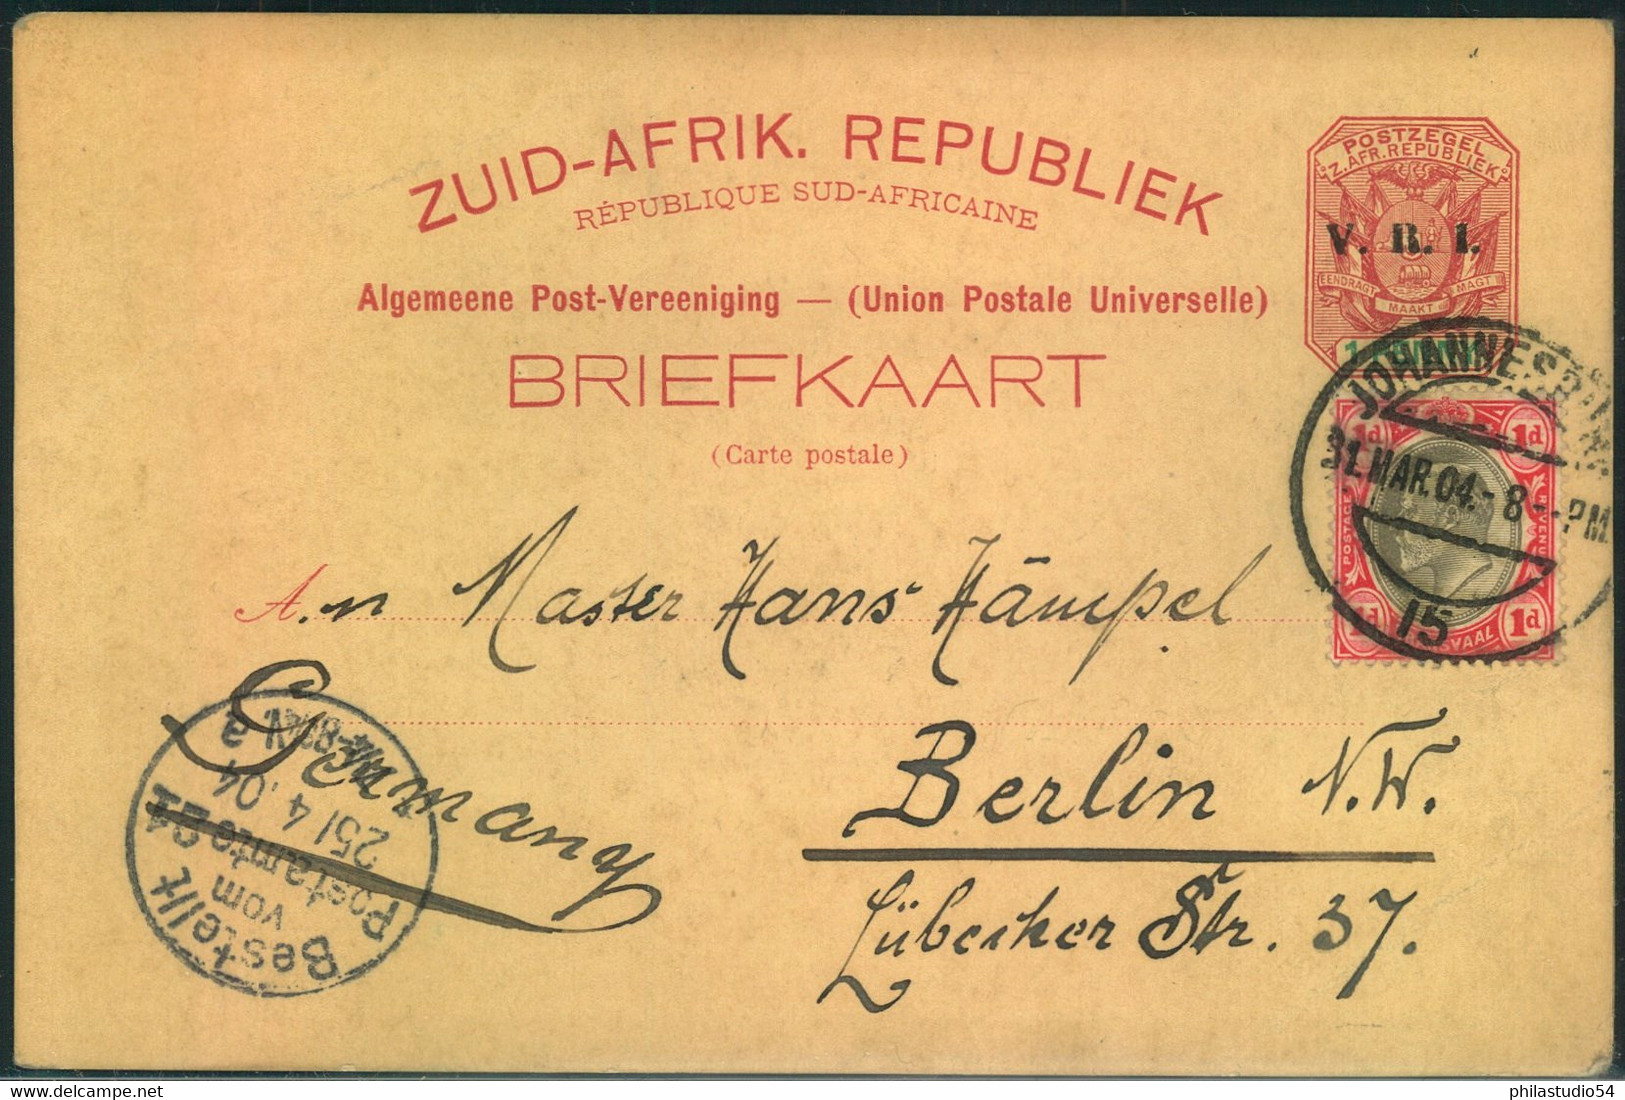 ZUID-AFRIK. REPUBLIEK
RÉPUBLIQUE SUD-AFRICAINE
Algemeene Post-Vereeniging — (Union Postale Universelle)
BRIEFKAART
(Carte postale)
POSTZEGEL
Z. AFR. REPUBLIEK
V. R. I.
EENDRAGT MAAKT MAGT
JOHANNESBURG
31.MAR.04.-8--PM
15
1d 1d
POSTAGE REVENUE
1d 1d
An Master Hans Hämpel
Germany
Berlin N.W.
Lübecker Str. 37.
Bestellt
vom
Postamte 21
25/4.04
a
www.delcampe.net
philastudio54